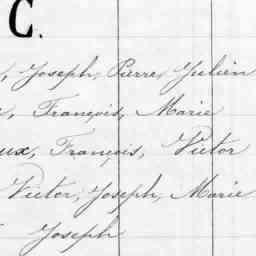 C.
, Joseph, Pierre, Julien
, François, Marie
ux, François, Victor
Victor, Joseph, Marie
Joseph